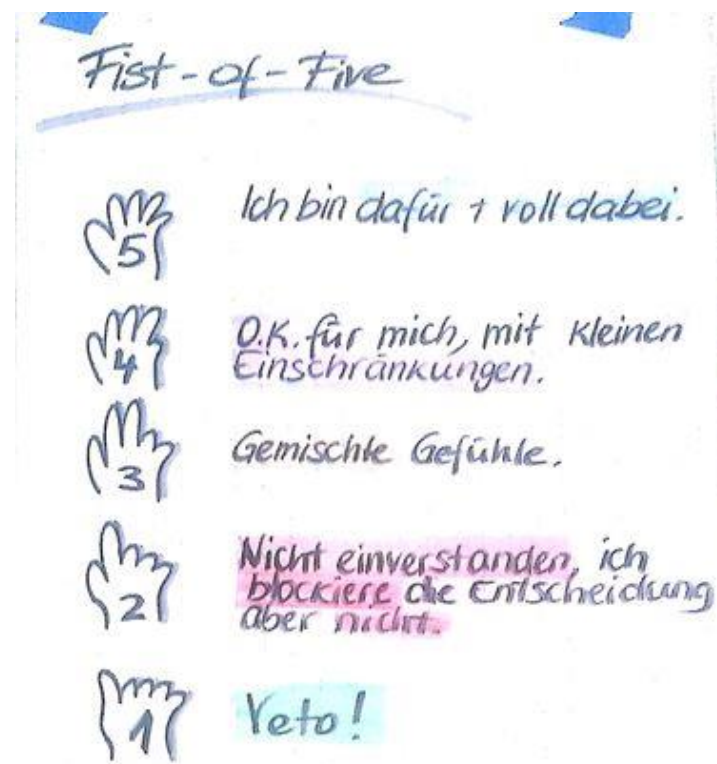 Fist-of-Five
5
Ich bin dafür + voll dabei.
4
O.K. für mich, mit kleinen
Einschränkungen.
3
Gemischte Gefühle.
2
Nicht einverstanden, ich
blockiere die Entscheidung
aber nicht.
1
Veto!